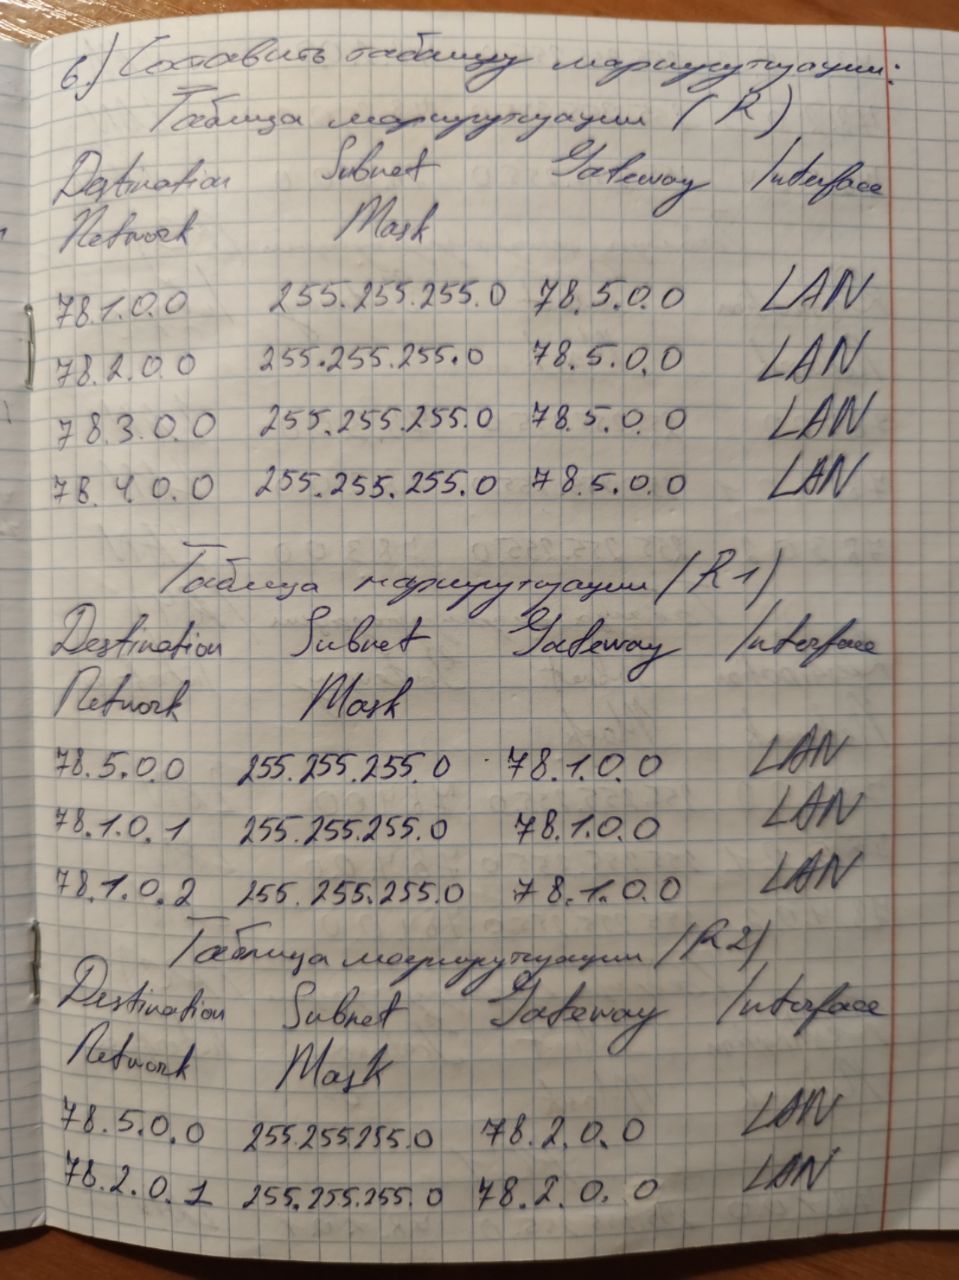 6) Составить таблицу маршрутизации:
Таблица маршрутизации (R)
Destination Subnet Gateway Interface
Network Mask
78.1.0.0 255.255.255.0 78.5.0.0 LAN
78.2.0.0 255.255.255.0 78.5.0.0 LAN
78.3.0.0 255.255.255.0 78.5.0.0 LAN
78.4.0.0 255.255.255.0 78.5.0.0 LAN
Таблица маршрутизации (R1)
Destination Subnet Gateway Interface
Network Mask
78.5.0.0 255.255.255.0 78.1.0.0 LAN
78.1.0.1 255.255.255.0 78.1.0.0 LAN
78.1.0.2 255.255.255.0 78.1.0.0 LAN
Таблица маршрутизации (R2)
Destination Subnet Gateway Interface
Network Mask
78.5.0.0 255.255255.0 78.2.0.0 LAN
78.2.0.1 255.255.255.0 78.2.0.0 LAN